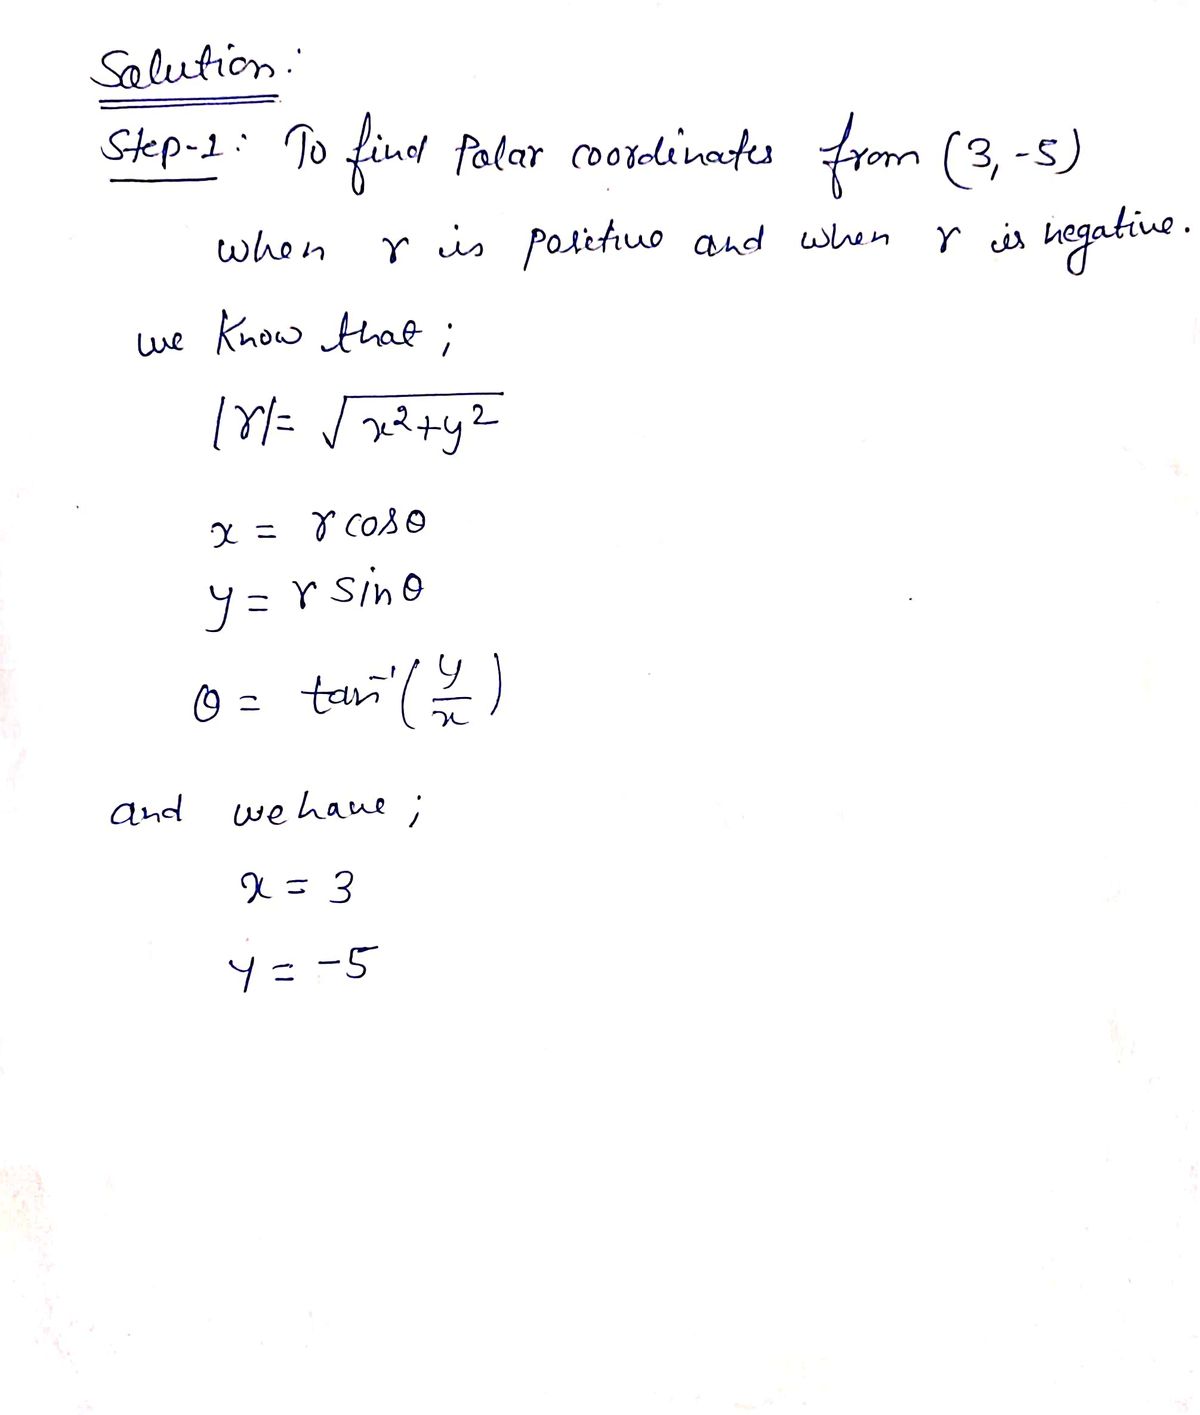 Solution:
Step-1: To find Polar coordinates from (3, -5)
when r is positive and when r is negative.
we know that;
|r| = √x²+y²
x = r cosθ
y = r sinθ
θ = tan⁻¹(y/x)
and we have;
x = 3
y = -5